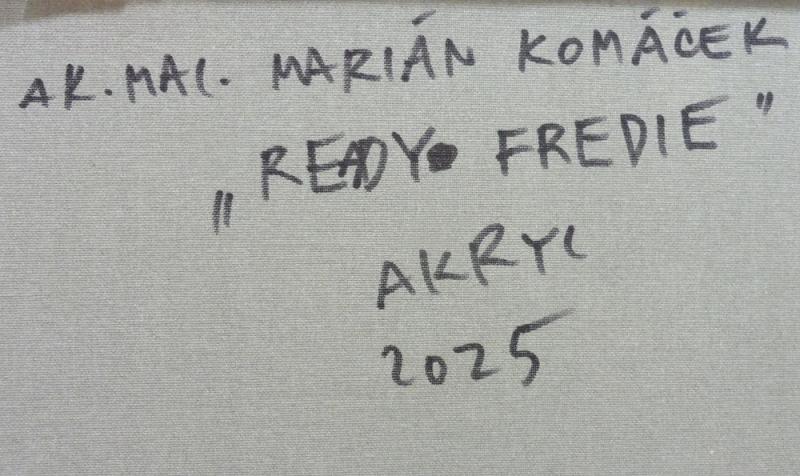 AK. MAL. MARIÁN KOMÁČEK
„READY FREDIE"
AKRYL
2025